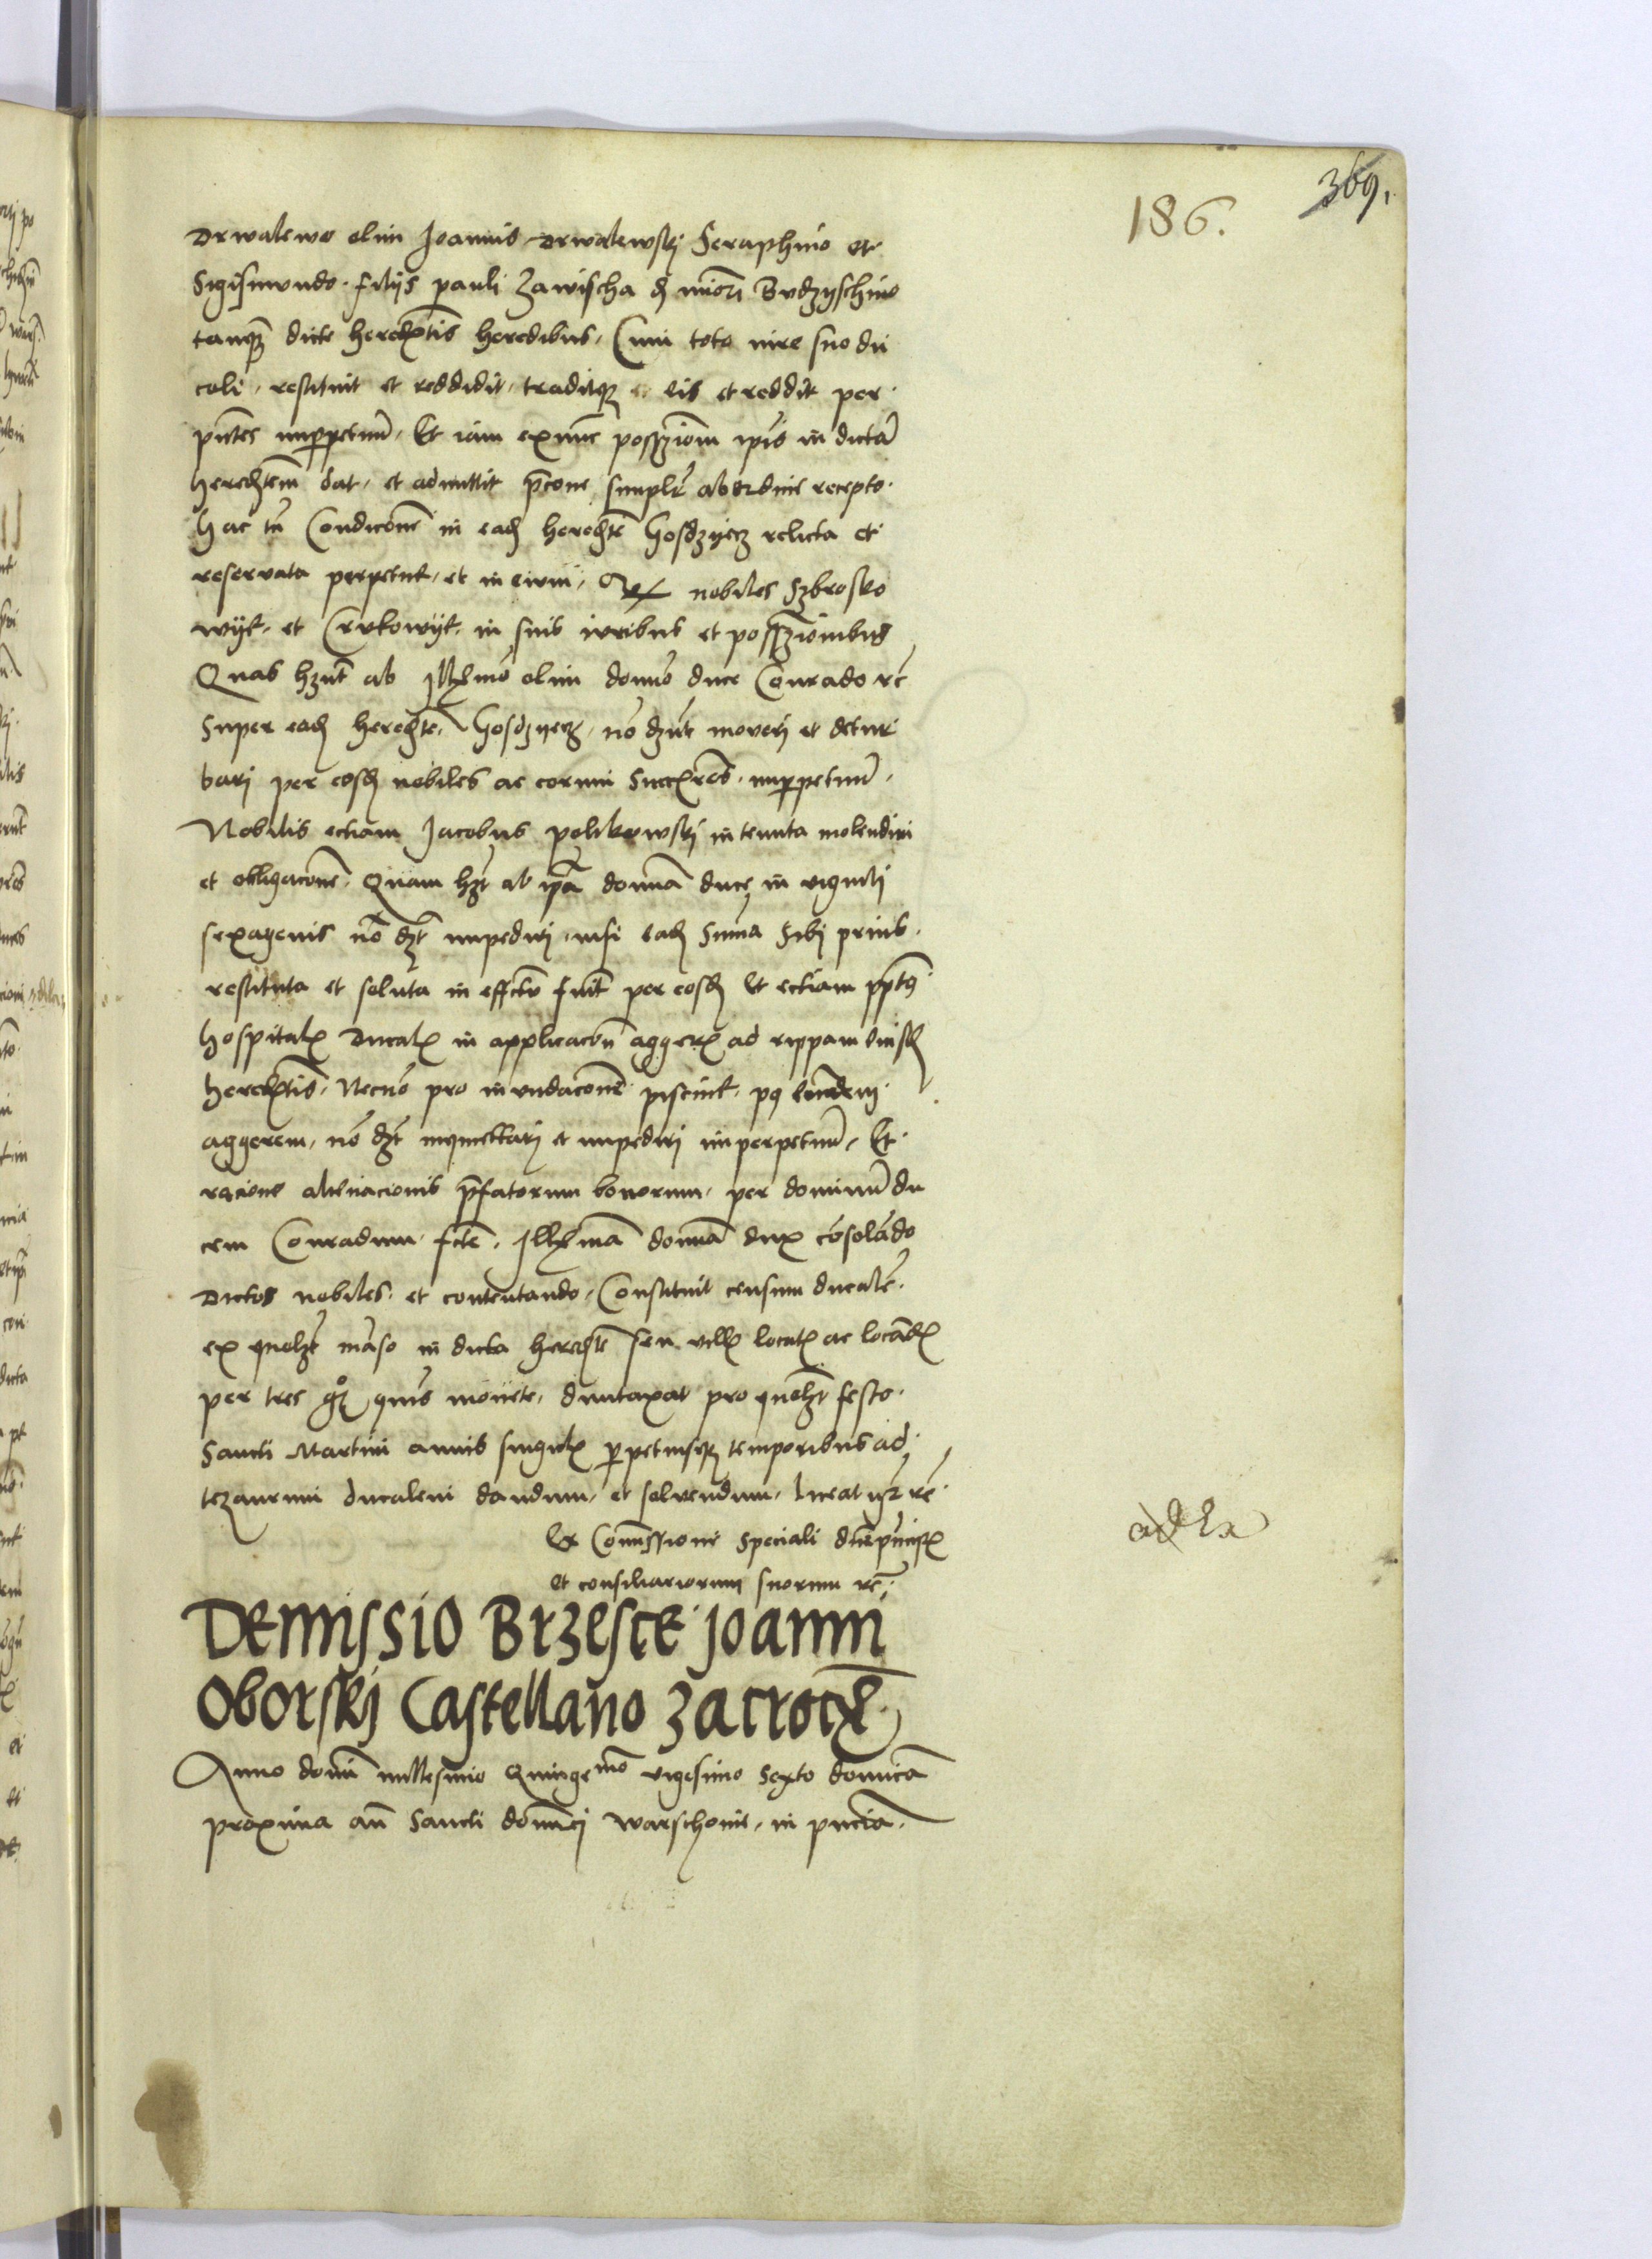 369.
186.
Drwalewo olim Joannis Drwalewskj Seraphino et
Sigismundo filijs pauli Zawischa de minori Budzyschino
tanquam dicte hereditatis heredibus, Cum toto iure suo du
cali, restituit et reddidit, traditque eis et reddit per
presentes imperpetuum, Et iam exnunc possessionem ipsis in dictam
hereditatem dat, et admittit precone simpliciter ab ordine recepto.
hac tamen Condicione in eadem hereditate Gosdzyecz relicta et
reservata perpetue, et in eivum, nobiles Szbrosko
wyt, et Crukowyt, in suis iuribus et possessionibus
Quas habent ab Illustrissimo olim domino duce Conrado etc
Super eadem hereditate, Gosdzyecz, non debent moveri et detur
bari per eosdem nobiles ac eorum Successores imperpetuum,
Nobilis eciam Jacobus polikowskj in tenuta molendini
et obligacione, Quam habet ab ipsa domina duce in viginti
sexagenis non debet impediri, nisi eadem Summa Sibi prius
restituta et soluta in effectu fuerit per eosdem Et eciam prepositus
hospitalis Ducalis in applicacione aggeris ad rippam eiusdem
hereditatis, Necnon pro inundacione piscine, per eundem
aggerem, non debet inquietari et impediri imperpetuum, Et
racione alienacionis prefatorum bonorum, per dominum du
cem Conradum facte, Illustrissima domina dux consolando
Dictos nobiles et contentando, Constituit censum ducalem
ex quolibet manso in dicta hereditate seu villa locatis ac locandis
per tres grossos monete, duntaxat pro quolibet festo
Sancti Martini annis singulis perpetuisque temporibus ad
tezaurum ducalem dandum, et solvendum, etc
Ex Comissione Speciali domine principis
et consiliariorum suorum etc
ad Ex
Demissio Brzesce Joanni
Oborskj Castellano Zacrocz
Anno domini millesimo Quingentesimo vigesimo Sexto dominica
proxima ante Sancti dominicj Warschovie, in presencia